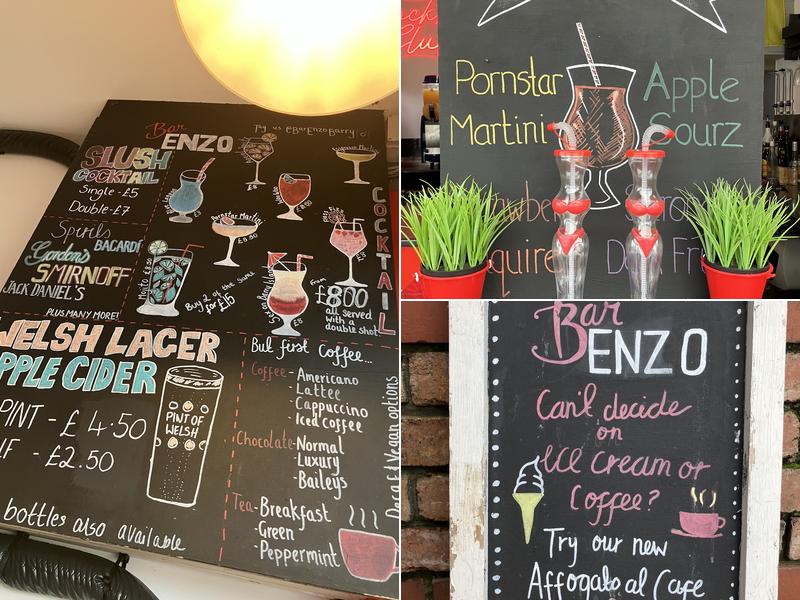 Bar
ENZO
Try us @BarEnzoBarry
SLUSH
COCKTAIL
Single - £5
Double - £7
Spirits
BACARDI
Gordon's
SMIRNOFF
JACK DANIEL'S
PLUS MANY MORE!
Pornstar Martini
£8.50
Mojito £8.50
Buy 2 of the same
for £15
From
£800
all served
with a
double shot
COCKTAIL
WELSH LAGER
APPLE CIDER
PINT - £4.50
- £2.50
PINT OF
WELSH
bottles also available
But first Coffee...
Coffee - Americano
- Lattee
- Cappuccino
- Iced coffee
Chocolate - Normal
- Luxury
- Baileys
Tea - Breakfast
- Green
- Peppermint
Decaf & Vegan options
Pornstar
Martini
Apple
Sourz
Bar
ENZO
Can't decide
on
Ice Cream or
Coffee?
Try our new
Affogato al Cafe